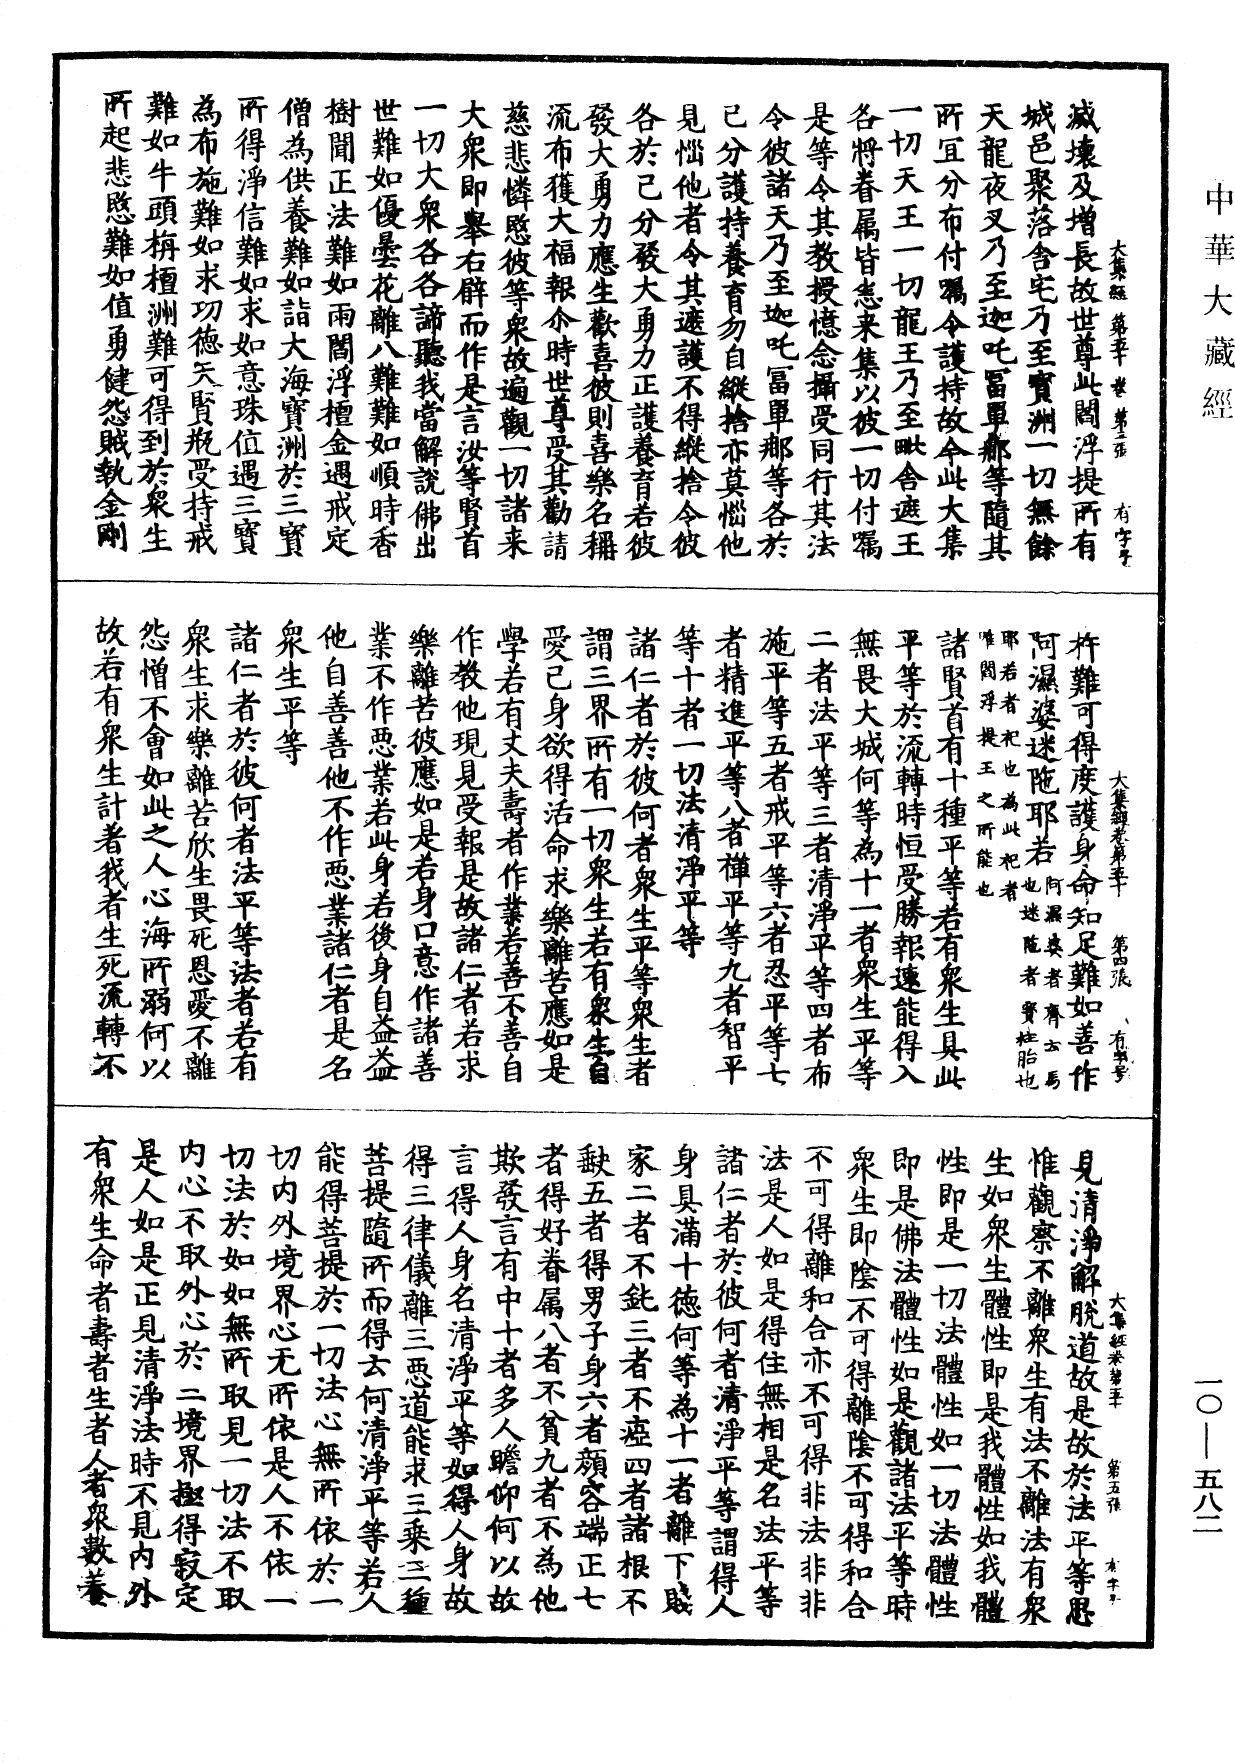 中華大藏經
一〇—五八二
大集經 第五十 卷 第三張 有字号
滅壞及增長故世尊此閻浮提所有
城邑聚落舍宅乃至寶洲一切無餘
天龍夜叉乃至迦吒冨單那等隨其
所冝分布付嘱令護持故今此大集
一切天王一切龍王乃至毗舍遮王
各將眷属皆悉来集以彼一切付嘱
是等令其教授憶念攝受同行其法
令彼諸天乃至迦吒冨單那等各於
已分護持養育勿自縱捨亦莫惱他
見惱他者令其遮護不得縱捨令彼
各於已分發大勇力正護養育若彼
發大勇力應生歡喜彼則喜樂名稱
流布獲大福報尒時世尊受其勸請
慈悲憐愍彼等衆故遍觀一切諸来
大衆即舉右臂而作是言汝等賢首
一切大衆各各諦聽我當解說佛出
世難如優曇花離八難難如順時香
樹聞正法難如雨閻浮檀金遇戒定
僧為供養難如詣大海寶洲於三寶
所得淨信難如求如意珠位遇三寶
為布施難如求功德天賢瓶受持戒
難如牛頭栴檀洲難可得到於衆生
所起悲愍難如值勇健怨賊執金剛
大集經卷第五十 第四張 有字号
杵難可得度護身命知足難如善作
阿濕婆迷陁耶若 阿濕婆者齊云馬也迷陁者寶柱胎也
耶若者祀也為此祀者
唯閻浮提王之所能也
諸賢首有十種平等若有衆生具此
平等於流轉時恒受勝報速能得入
無畏大城何等為十一者衆生平等
二者法平等三者清淨平等四者布
施平等五者戒平等六者忍平等七
者精進平等八者禪平等九者智平
等十者一切法清淨平等
諸仁者於彼何者衆生平等衆生者
謂三界所有一切衆生若有衆生自
愛己身欲得活命求樂離苦應如是
學若有丈夫壽者作業若善不善自
作教他現見受報是故諸仁者若求
樂離苦彼應如是若身口意作諸善
業不作惡業若此身若後身自益益
他自善善他不作惡業諸仁者是名
衆生平等
諸仁者於彼何者法平等法者若有
衆生求樂離苦欣生畏死恩愛不離
怨憎不會如此之人心海所溺何以
故若有衆生計著我者生死流轉不
大集經卷第五十 第五張 有字号
見清淨解脫道故是故於法平等思
惟觀察不離衆生有法不離法有衆
生如衆生體性即是我體性如我體
性即是一切法體性如一切法體性
即是佛法體性如是觀諸法平等時
衆生即陰不可得離陰不可得和合
不可得離和合亦不可得非法非非
法是人如是得住無相是名法平等
諸仁者於彼何者清淨平等謂得人
身具滿十德何等為十一者離下賤
家二者不鈍三者不瘂四者諸根不
缺五者得男子身六者顏容端正七
者得好眷属八者不貧九者不為他
欺發言有中十者多人瞻仰何以故
言得人身名清淨平等如得人身故
得三律儀離三惡道能求三乘三種
菩提隨所而得云何清淨平等若人
能得菩提於一切法心無所依於一
切內外境界心无所依是人不依一
切法於如如無所取見一切法不取
內心不取外心於二境界極得寂定
是人如是正見清淨法時不見內外
有衆生命者壽者生者人者衆數養